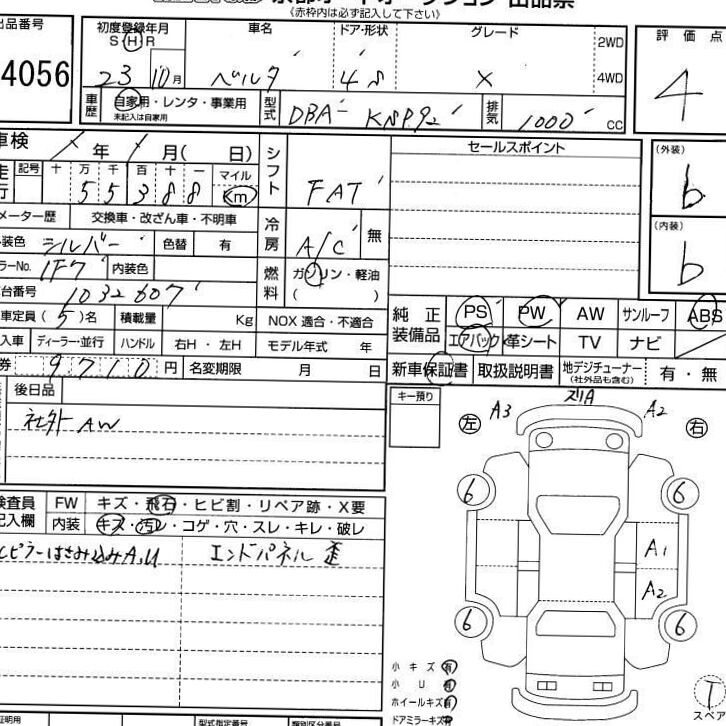 《赤枠内は必ず記入して下さい》
出品番号 初度登録年月 車名 ドア・形状 グレード 評価点
S H R
4056 23 10月 ベルタ 4 S X 2WD 4WD 4
車歴 自家用・レンタ・事業用 未記入は自家用 型式 DBA- KSP92 排気 1000 CC
車検 年 月( 日) シフト FAT セールスポイント (外装) b
走行 記号 十 万 千 百 十 一 マイル
5 5 3 8 8 Km
メーター歴 交換車・改ざん車・不明車 冷房 A/C 無 (内装) b
外装色 シルバー 色替 有
カラーNo. 1F7 内装色 燃料 ガソリン・軽油 ( )
車台番号 1032607
車定員 (5)名 積載量 Kg NOX 適合・不適合 純正装備品 PS PW AW サンルーフ ABS
輸入車 ディーラー・並行 ハンドル 右H・左H モデル年式 年 エアバック 革シート TV ナビ
券 9710円 名変期限 月 日 新車保証書 取扱説明書 地デジチューナー (社外品も含む) 有・無
後日品 キー預り
社外 AW
A3 スリA A2
左 右
検査員記入欄 FW キズ・飛石・ヒビ割・リペア跡・X要
内装 キズ・汚レ・コゲ・穴・スレ・キレ・破レ
ピラーはさみ込みA,U エンドパネル歪
6 6
A1
A2
6 6
小キズ 有
小U 有
ホイールキズ 有
ドアミラーキズ 有
T
スペア
型式指定番号 類別区分番号